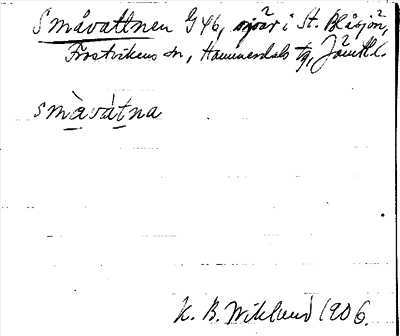 Småvattnen G46, sjöar i St. Blåsjön,
Frostvikens sn, Hammerdals tg, Jämtl.
småvàtna
K. B. Wiklund 1906.